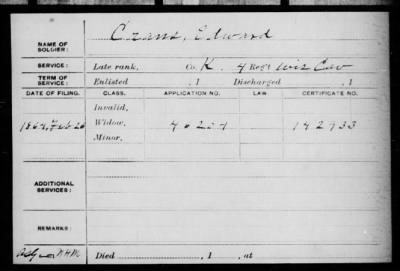 Crans, Edward
NAME OF
SOLDIER:
SERVICE: Late rank, Co. K. 4 Reg't Wis Cav
TERM OF
SERVICE: Enlisted , 1 Discharged , 1
DATE OF FILING. CLASS. APPLICATION NO. LAW. CERTIFICATE NO.
Invalid,
1864, Feb 26 Widow, 40204 142933
Minor,
ADDITIONAL
SERVICES:
REMARKS:
Died , 1 , at